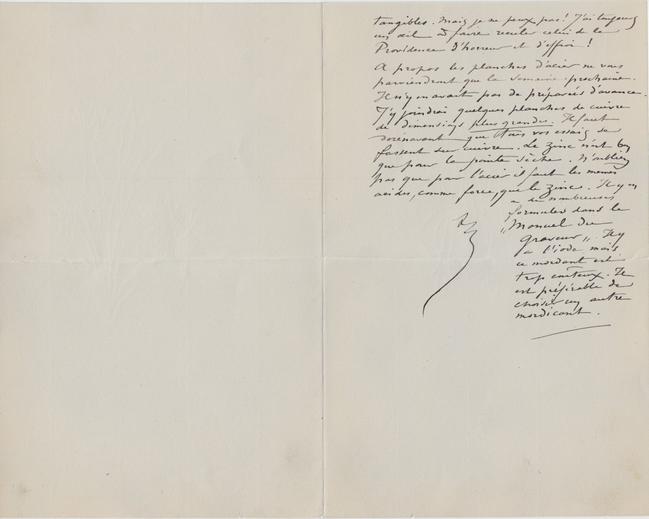 tangibles. Mais je ne peux pas ! J'ai toujours
un œil à faire reculer celui de la
Providence d'horreur et d'effroi !
A propos les planches d'acier ne vous
parviendront que la semaine prochaine.
Il n'y en avait pas de préparées d'avance.
J'y joindrai quelques planches de cuivre
de dimensions plus grandes. Il faut
dorénavant que tous vos essais se
fassent sur cuivre. Le zinc n'est bon
que pour la pointe sèche. N'oubliez
pas que pour l'acier il faut les mêmes
acides, comme force, que le zinc. Il y en
a de nombreuses
formules dans le
"Manuel du
Graveur". Il y
a l'iode mais
ce mordant est
trop coûteux. Il
est préférable de
choisir un autre
mordicant.